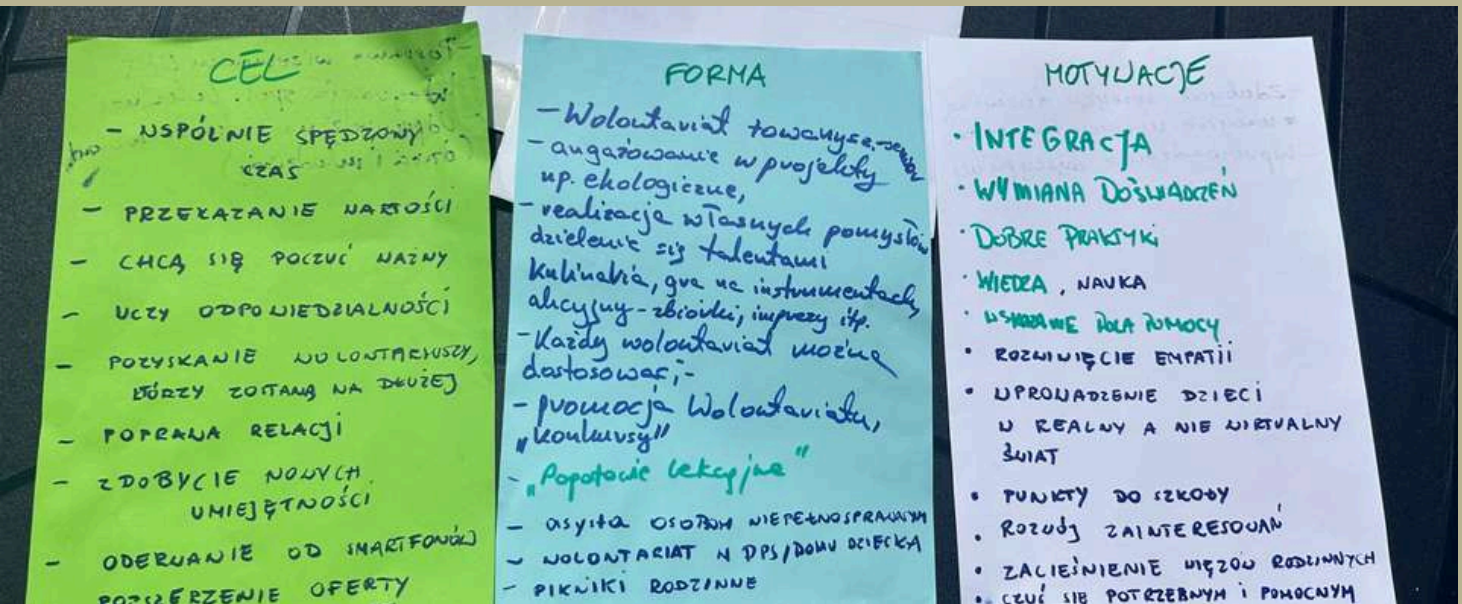 CEL
- WSPÓLNIE SPĘDZONY
CZAS
- PRZEKAZANIE WARTOŚCI
- CHCĄ SIĘ POCZUĆ WAŻNY
- UCZY ODPOWIEDZIALNOŚCI
- POZYSKANIE WOLONTARIUSZY,
KTÓRZY ZOSTANĄ NA DŁUŻEJ
- POPRAWA RELACJI
- ZDOBYCIE NOWYCH
UMIEJĘTNOŚCI
- ODERWANIE OD SMARTFONÓW
POSZERZENIE OFERTY
FORMA
- Wolontariat
- angażowanie w projekty
np. ekologiczne,
- realizacja własnych pomysłów
dzielenie się talentami
kulinaria, gra na instrumentach,
akcyjny - zbiórki, imprezy itp.
- Każdy wolontariat można
dostosować;-
- promocja Wolontariatu,
"konkursy"
- "Pogotowie lekcyjne"
- asysta OSOBOM NIEPEŁNOSPRAWNYM
- WOLONTARIAT W DPS/DOMU DZIECKA
- PIKNIKI RODZINNE
MOTYWACJE
· INTEGRACJA
· WYMIANA DOŚWIADCZEŃ
· DOBRE PRAKTYKI
· WIEDZA, NAUKA
· WSKAZANIE POLA POMOCY
• ROZWINIĘCIE EMPATII
• WPROWADZENIE DZIECI
W REALNY A NIE WIRTUALNY
ŚWIAT
• PUNKTY DO SZKOŁY
• ROZWÓJ ZAINTERESOWAŃ
• ZACIEŚNIENIE WIĘZÓW RODZINNYCH
• CZUĆ SIĘ POTRZEBNYM I POMOCNYM